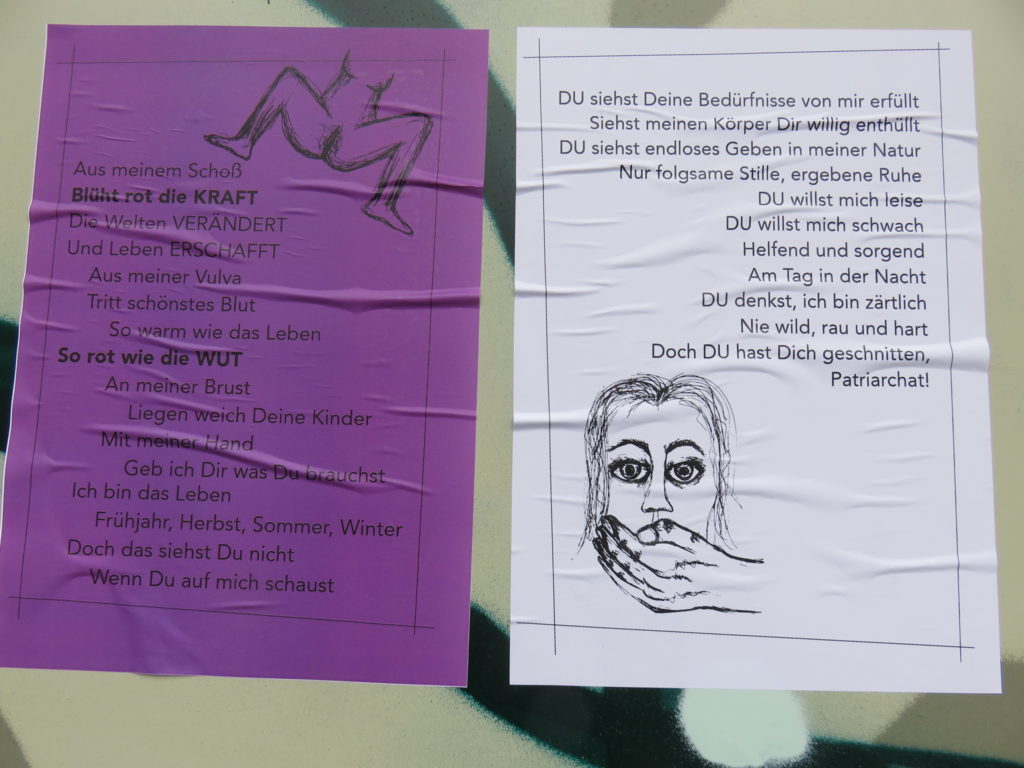 Aus meinem Schoß
Blüht rot die KRAFT
Die Welten VERÄNDERT
Und Leben ERSCHAFFT
Aus meiner Vulva
Tritt schönstes Blut
So warm wie das Leben
So rot wie die WUT
An meiner Brust
Liegen weich Deine Kinder
Mit meiner Hand
Geb ich Dir was Du brauchst
Ich bin das Leben
Frühjahr, Herbst, Sommer, Winter
Doch das siehst Du nicht
Wenn Du auf mich schaust
DU siehst Deine Bedürfnisse von mir erfüllt
Siehst meinen Körper Dir willig enthüllt
DU siehst endloses Geben in meiner Natur
Nur folgsame Stille, ergebene Ruhe
DU willst mich leise
DU willst mich schwach
Helfend und sorgend
Am Tag in der Nacht
DU denkst, ich bin zärtlich
Nie wild, rau und hart
Doch DU hast Dich geschnitten,
Patriarchat!